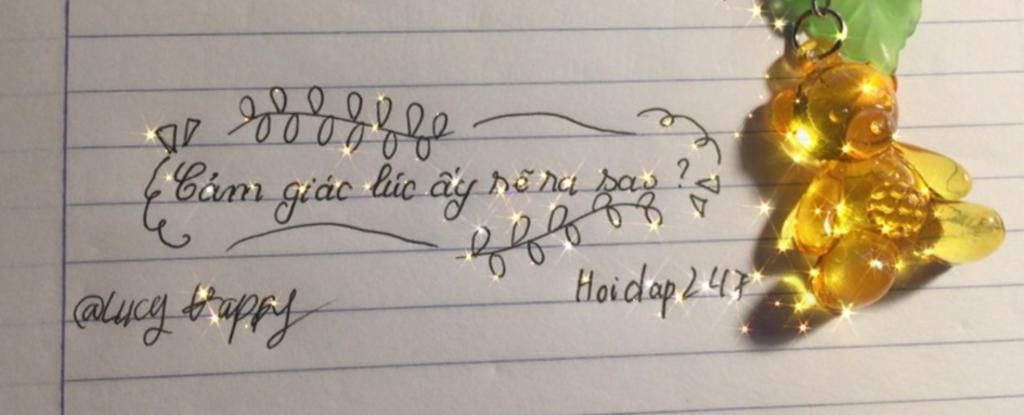 Cảm giác lúc ấy sẽ ra sao?
@Lucy Happy
Hoidap247